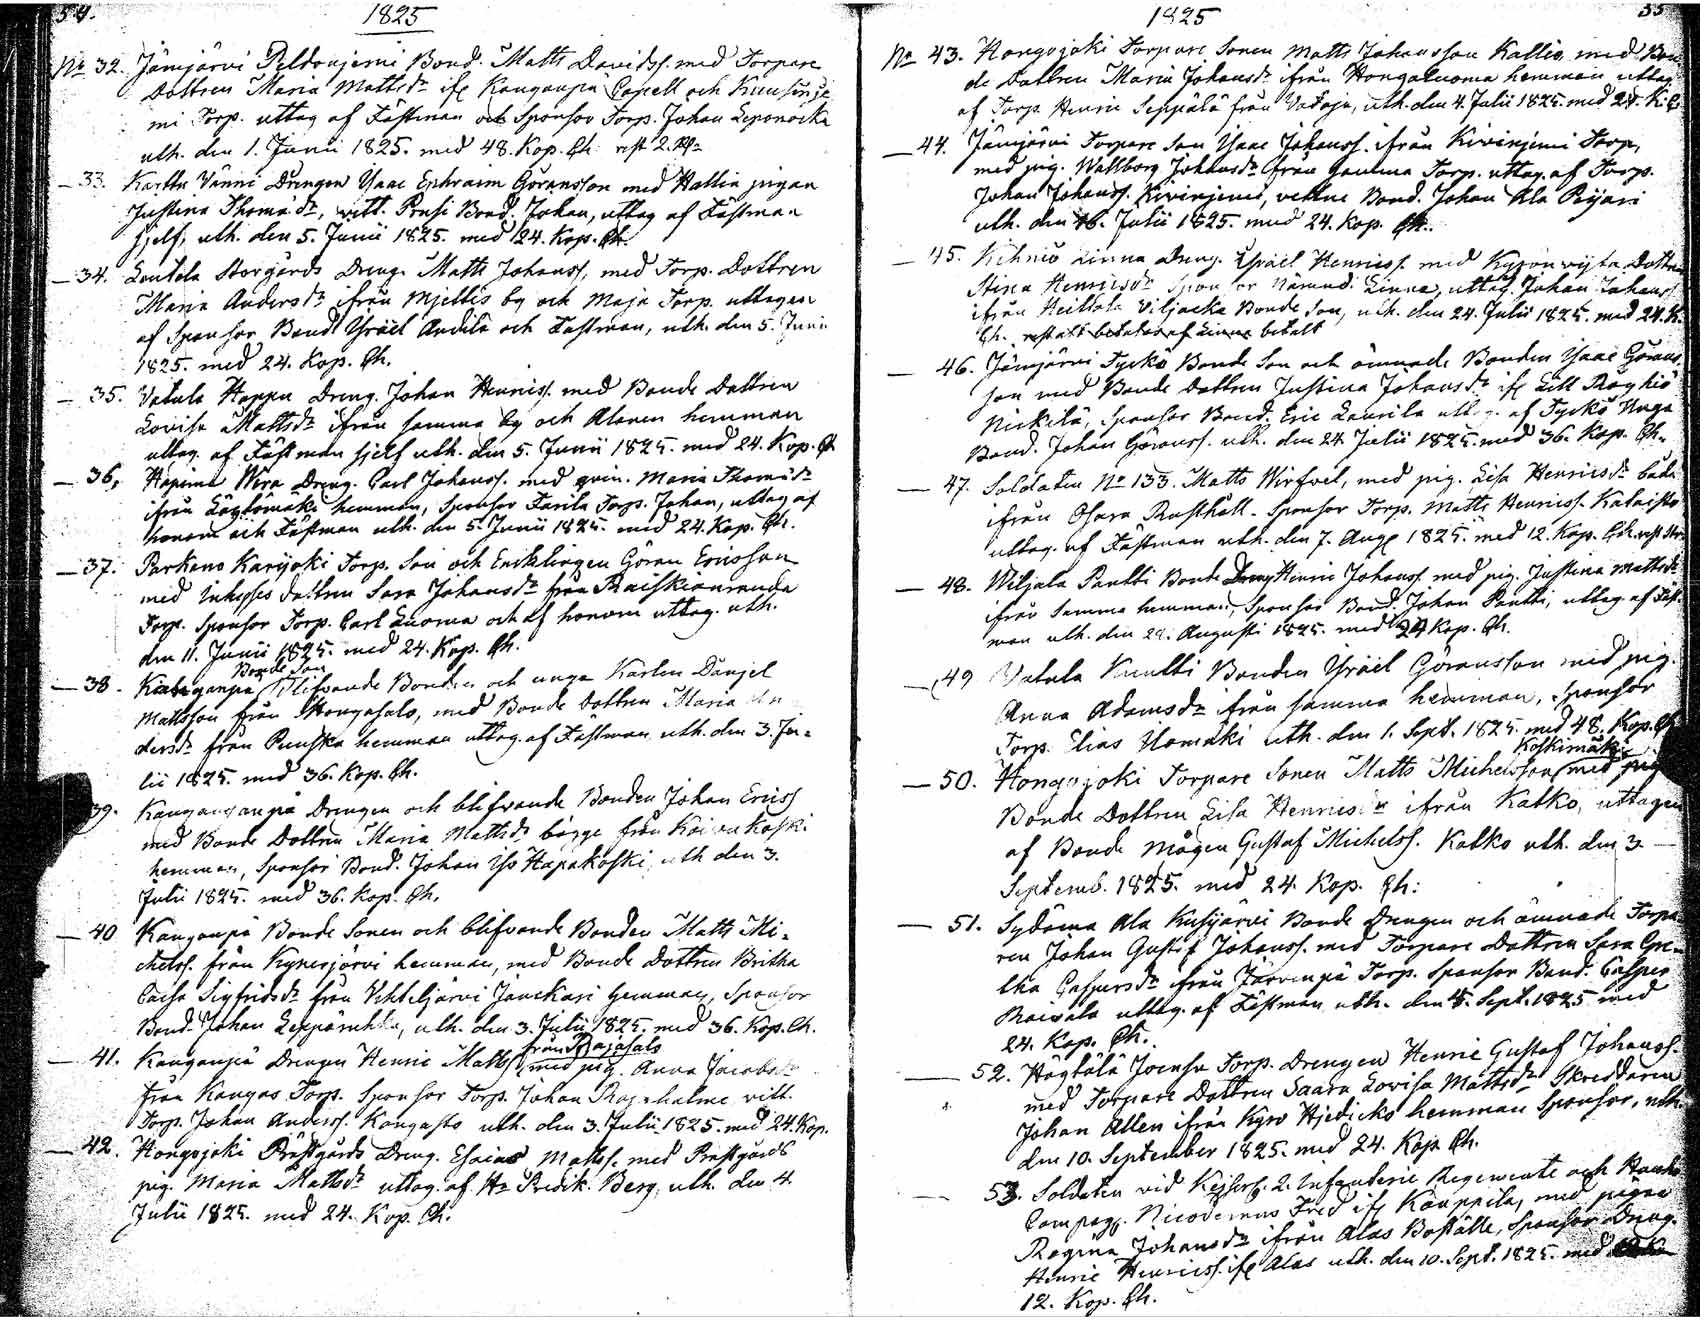 54.
1825
No 32. Jämijärvi Peldonjemi Bond. Matts Davidss. med Torpare
Dottren Maria Mattsdr ifr Kangaspä Capell och
mi Torp. uttag af Fästman och Sponsor Torp. Johan
uth. den 1. Junii 1825. med 48. Kop. Ch. rest 2.
33. Karttu Vänni Drengen Ysaac Ephraim Göransson med Hallia pigan
Justina Thomædr, vitt. Prusi Bond. Johan, uttag af Fästman
sjelf, uth. den 5. Junii 1825. med 24. Kop. Ch.
34. Storgårds Dreng. Matts Johanss, med Torp. Dottren
Maria Andersdr ifrån Mjettis by och Maja Torp. uttagen
af Sponsor Bond. Ysräel Andila och Fästman, uth. den 5. Junii
1825. med 24. Kop. Ch.
35. Vatula Happu Dreng. Johan Henricss. med Bonde Dottren
Lovisa Mattsdr ifrån samma by och Alanen hemman
uttag. af Fästman sjelf uth. den 5. Junii 1825. med 24. Kop. Ch
36, Wira Dreng. Carl Johanss. med qvin. Maria Thomædr
ifrån hemman, Sponsor Torp. Johan, uttag af
honom och Fästman uth. den 5. Junii 1825. med 24. Kop. Ch.
37. Parkano Karijoki Torp. Son och Enklingen Göran Ericsson
med Inhyses dottren Sara Johansdr från
Torp. Sponsor Torp. Carl Luoma och af honom uttag. uth.
den 11. Junii 1825. med 24. Kop. Ch.
Bonde Son
38. Kangaspä blifvande Bonden och unga Karlen Danjel
Mattsson från Hongasalo, med Bonde Dottren Maria An
dersdr från hemman uttag. af Fästman uth. den 3. Ju-
lii 1825. med 36. Kop. Ch.
39. Kangaspä Drengen och blifvande Bonden Johan Ericss
med Bonde Dottren Maria Mattsdr bägge från Koivu Koski
hemman, Sponsor Bond. Johan Yso Hapakoski, uth den 3.
Julii 1825. med 36. Kop. Ch.
40 Kangaspä Bonde Sonen och blifvande Bonden Matts Mi-
chelss. från Kynesjärvi hemman, med Bonde Dottren Britha
Caisa Sigfridsdr från Vihteljärvi hemman, Sponsor
Bond. Johan, uth. den 3. Julii 1825. med 36. Kop. Ch.
från Rajasalo
41. Kangaspä Drengen Henric Matss, med pig. Anna Jacobsdr
från Kangas Torp. Sponsor Torp. Johan vitt.
Torp. Johan Anderss. Kangasto uth. den 3. Julii 1825. med 24. Kop.
42. Hongojoki Prästgårds Dreng. Esaias Matss. med Prästgårds
pig. Maria Mattsdr uttag. af Hr Predik. Berg, uth. den 4.
Julii 1825. med 24. Kop. Ch.
55
1825
No 43. Hongojoki Torpare Sonen Matts Johansson Kallio, med Bon-
de Dottren Maria Johansdr ifrån Hongaluoma hemman uttag.
af Torp. Henric Seppälä från Vataja, uth. den 4. Julii 1825. med 24. K. C
44. Jämijärvi Torpare Son Ysaac Johanss. ifrån Kivinjemi Torp,
med pig. Wallborg Johansdr ifrån Torp. uttag. af Torp.
Johan Johanss. Kivinjemi, Bond. Johan Ala Röjäri
uth. den 16. Julii 1825. med 24. Kop. Ch.
45. Kihniö Linna Dreng. Ysräel Henricss. med Kyrönvijta Dottren
Stina Henricsdr Sponsor Nämnd. Linna, uttag. Johan Johanss
ifrån Viljacka Bonde Son, uth. den 24. Julii 1825. med 24. K.
Ch. af Linna betalt
46. Jämijärvi Tyckö Bonde Son och ämnade Bonden Ysaac Görans-
son med Bonde Dottren Justina Johansdr ifr Lill Röyhiö
Nickilä, Sponsor Bond. Eric Laurila uttag. af Tyckö Unga
Bond. Johan Göranss. uth. den 24 Julii 1825. med 36. Kop. Ch.
47. Soldaten No 133. Matts Wirfvel, med pig. Lisa Henricsdr båda
ifrån Osara Rusthåll. Sponsor Torp. Matts Henricss. Kataisto
uttag. af Fästman uth. den 7. Aug 1825. med 12. Kop. Ch.
48. Wiljala Pantti Bonde Dreng Henric Johanss. med pig. Justina Mattsdr
ifrån samma hemman, Sponsor Bond. Johan Pantti, uttag. af Fäst-
man uth. den 28. Augusti 1825. med 24 Kop. Ch.
49 Vatula Knutti Bonden Ysräel Göransson med pig.
Anna Adamsdr ifrån samma hemman, Sponsor
Torp. Elias Uomäki uth. den 1. Sept. 1825. med 48. Kop. Ch
Koskimäki
50. Hongojoki Torpare Sonen Matts Michelsson med pig
Bonde Dottren Lisa Henricsdr ifrån Katko, uttagen
af Bonde Mågen Gustaf Michelss. Katko uth. den 3.
Septemb. 1825. med 24. Kop. Ch:
51. Sydänma Ala Kusijärvi Bonde Drengen och ämnade Torpa-
ren Johan Gustaf Johanss. med Torpare Dottren Sara Gre-
tha Caspersdr ifrån Järvenpä Torp. Sponsor Bond. Casper
uttag. af Fästman uth. den 4. Sept. 1825 med
24. Kop. Ch.
52. Högtälä Joensu Torp. Drengen Henric Gustaf Johanss.
med Torpare Dottren Saara Lovisa Mattsdr Skreddaren
Johan Allen ifrån Kyro hemman Sponsor, uth.
den 10. September 1825. med 24. Kop Ch.
53. Soldaten vid Kejserl. 2. Infanterie Regemente och
Compag. Nicodemus Fred ifr Kauppila, med pigan
Regina Johansdr ifrån Alas Boställe, Sponsor Dreng.
Henric Henricss. ifr Alas uth. den 10. Sept. 1825. med
12. Kop. Ch.